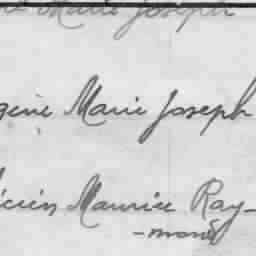 Marie Joseph
gène Marie Joseph
Maurice Ray-
-mond